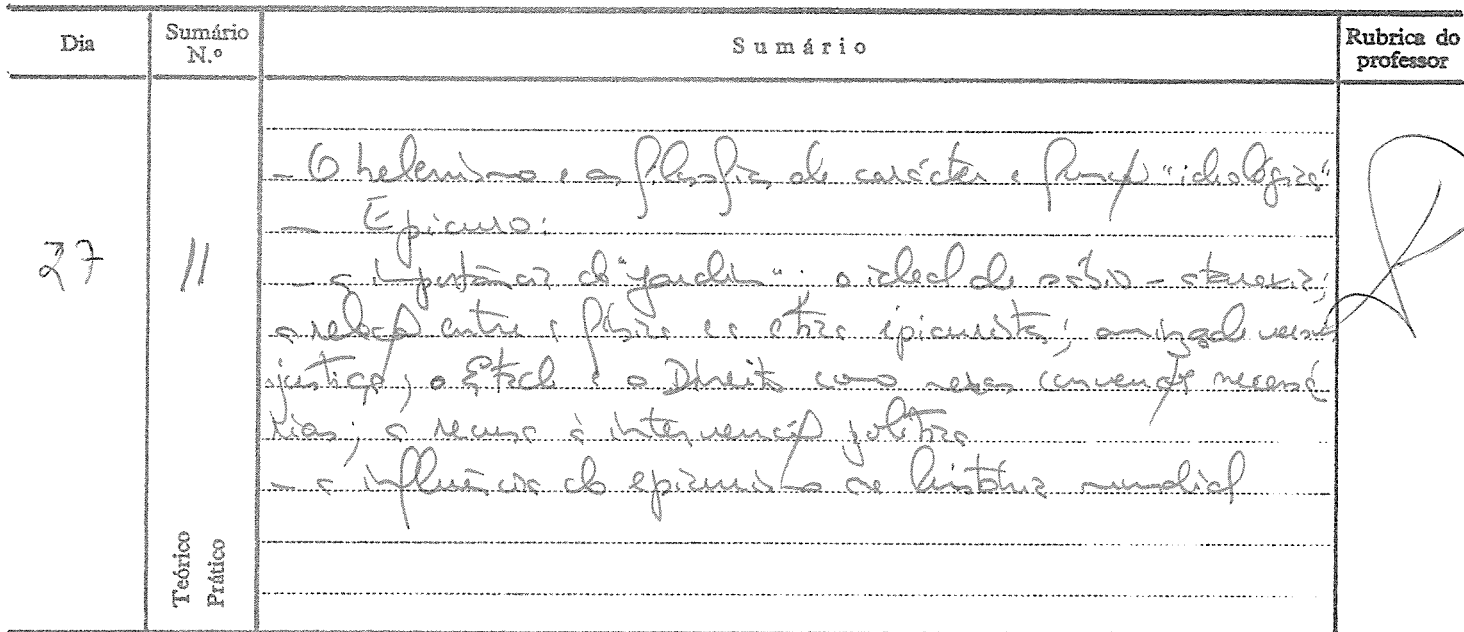 Dia
Sumário N.º
Sumário
Rubrica do professor
- O helenismo e as filosofias de carácter e função "ideológica"
- Epicuro:
27 11 - a importância do "jardim"; o ideal do sábio - ataraxia;
a relação entre a física e a ética epicurista; amizade versus
justiça; o Estado e o Direito como meras convenções necessá
rias; a recusa à intervenção política
- a influência do epicurismo na história mundial
Teórico
Prático